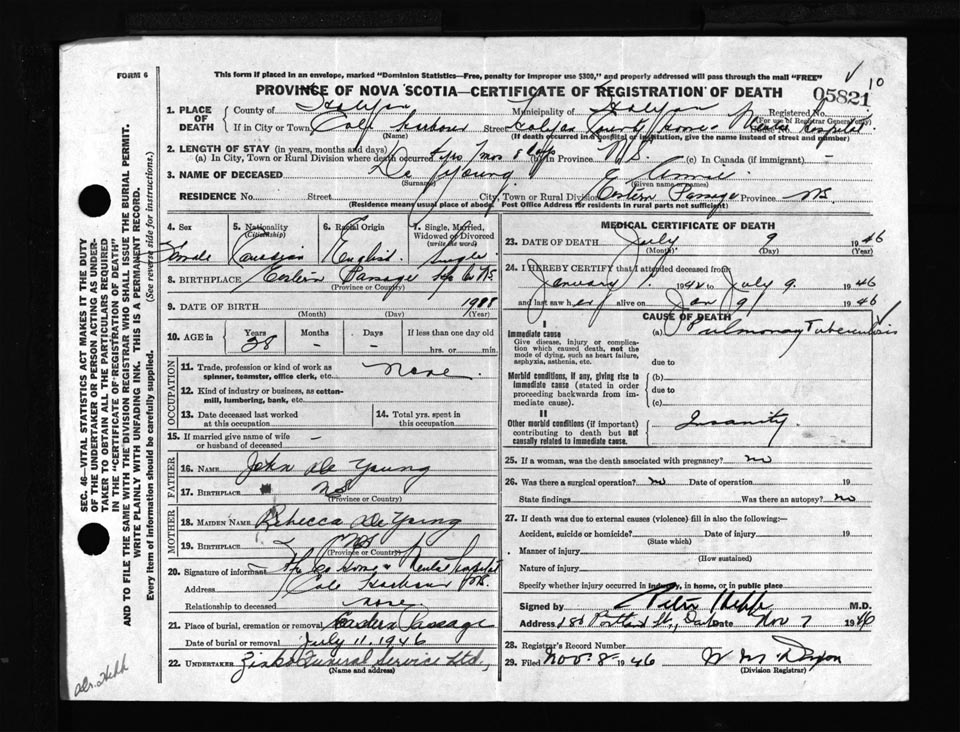 FORM 6
This form if placed in an envelope, marked "Dominion Statistics—Free, penalty for improper use $300," and properly addressed will pass through the mail "FREE"
10
PROVINCE OF NOVA SCOTIA—CERTIFICATE OF REGISTRATION OF DEATH
05821
1. PLACE OF DEATH
County of Halifax Municipality of Halifax Registered No.
(For use of Registrar General only)
If in City or Town Cole Harbour Street Halifax County Home Mental Hospital
(Name) (If death occurred in a hospital or institution, give the name instead of street and number)
2. LENGTH OF STAY (in years, months and days)
(a) In City, Town or Rural Division where death occurred 4 yrs 7 mos 8 dys (b) in Province N.S. (c) In Canada (if immigrant) -
3. NAME OF DECEASED De Young Annie
(Surname) (Given name or names)
RESIDENCE No. Street City, Town or Rural Division Eastern Passage Province N.S.
(Residence means usual place of abode. Post Office Address for residents in rural parts not sufficient)
4. Sex
Female
5. Nationality (Citizenship)
Canadian
6. Racial Origin
English
7. Single, Married, Widowed or Divorced (write the words)
Single
8. BIRTHPLACE Eastern Passage Hfx Co NS
(Province or County)
9. DATE OF BIRTH 1908
(Month) (Day) (Year)
10. AGE in Years 38 Months - Days - If less than one day old hrs. or min.
OCCUPATION
11. Trade, profession or kind of work as spinner, teamster, office clerk, etc. None
12. Kind of industry or business, as cotton-mill, lumbering, bank, etc.
13. Date deceased last worked at this occupation
14. Total yrs. spent in this occupation
15. If married give name of wife or husband of deceased -
FATHER
16. NAME John De Young
17. BIRTHPLACE N.S.
(Province or Country)
MOTHER
18. MAIDEN NAME Rebecca De Young
19. BIRTHPLACE N.S.
(Province or Country)
20. Signature of informant Hfx Co Home & Mental Hospital
Address Cole Harbour N.S.
Relationship to deceased none
21. Place of burial, cremation or removal Eastern Passage
Date of burial or removal July 11. 1946
22. UNDERTAKER Zinks Funeral Service Ltd.,
(Name and address)
MEDICAL CERTIFICATE OF DEATH
23. DATE OF DEATH July 9 1946
(Month) (Day) (Year)
24. I HEREBY CERTIFY that I attended deceased from
January 1. 1942 to July 9. 1946
and last saw her alive on Jan 9 1946
CAUSE OF DEATH
I
Immediate cause
Give disease, injury or complication which caused death, not the mode of dying, such as heart failure, asphyxia, asthenia, etc.
(a) Pulmonary Tuberculosis
due to
Morbid conditions, if any, giving rise to immediate cause (stated in order proceeding backwards from immediate cause).
(b)
due to
(c)
II
Other morbid conditions (if important) contributing to death but not causally related to immediate cause.
Insanity.
25. If a woman, was the death associated with pregnancy? no
26. Was there a surgical operation? no Date of operation 19
State findings Was there an autopsy? no
27. If death was due to external causes (violence) fill in also the following:—
Accident, suicide or homicide? Date of injury 19
(State which)
Manner of injury
(How sustained)
Nature of injury
Specify whether injury occurred in industry, in home, or in public place
Signed by M.D.
Address 180 Portland St., Dart Date Nov 7 1946
28. Registrar's Record Number
29. Filed Nov. 8 1946 W M Dixon
(Division Registrar)
SEC. 46—VITAL STATISTICS ACT MAKES IT THE DUTY
OF THE UNDERTAKER OR PERSON ACTING AS UNDERTAKER TO OBTAIN ALL THE PARTICULARS REQUIRED
IN THE "CERTIFICATE OF REGISTRATION OF DEATH"
AND TO FILE THE SAME WITH THE DIVISION REGISTRAR WHO SHALL ISSUE THE BURIAL PERMIT.
WRITE PLAINLY WITH UNFADING INK. THIS IS A PERMANENT RECORD.
Every item of information should be carefully supplied. (See reverse side for instructions.)